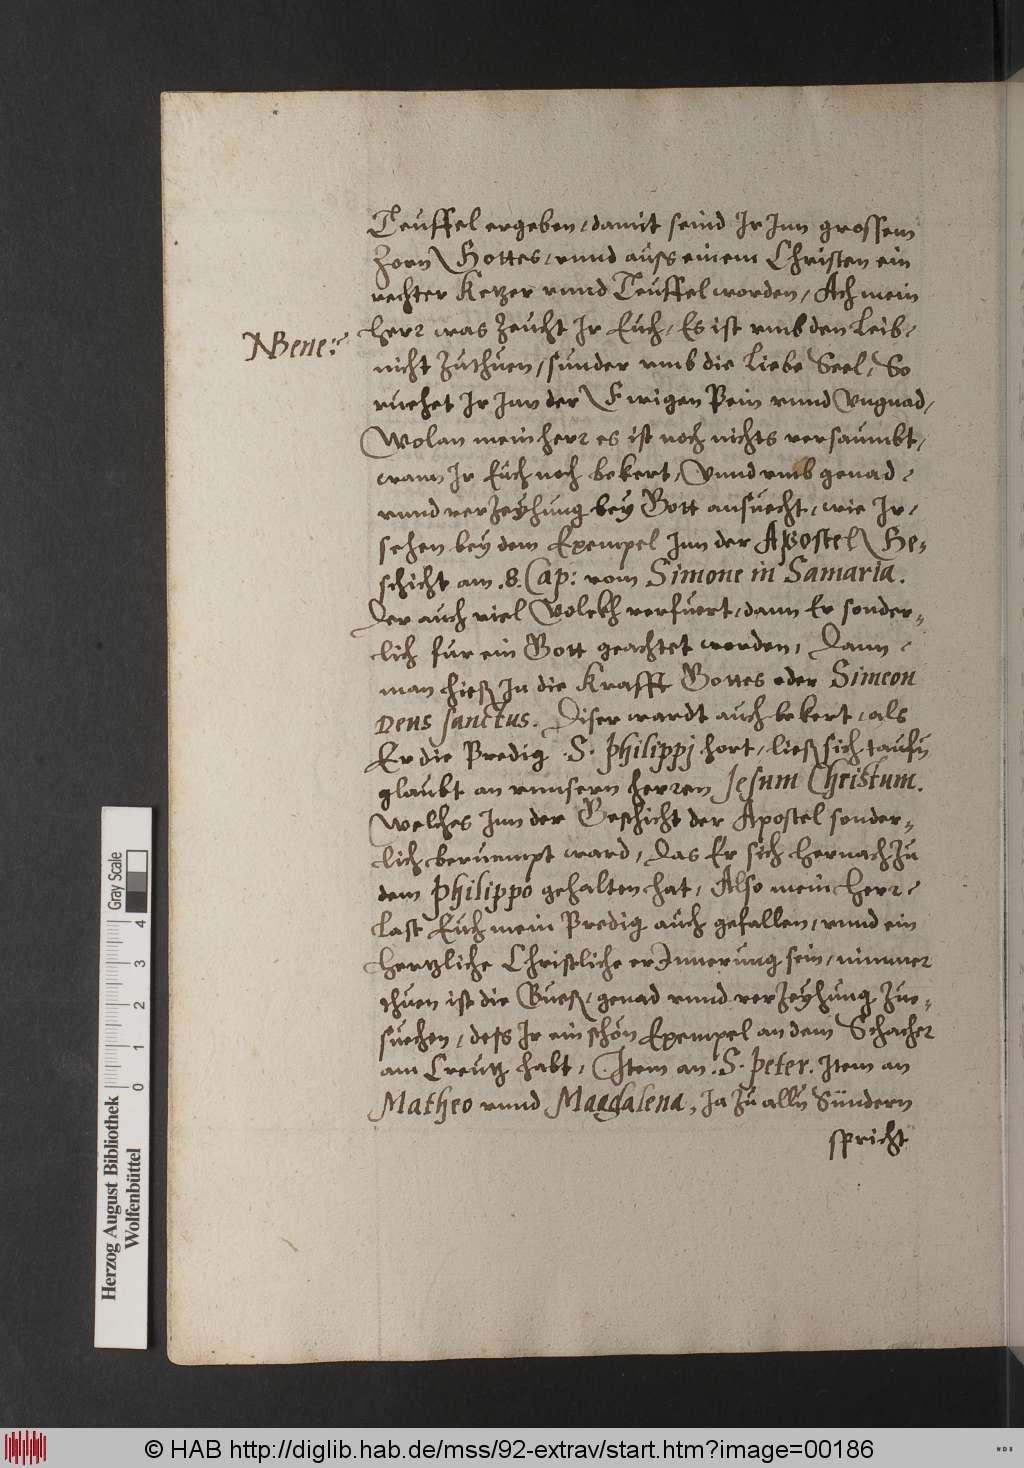 Teuffel ergeben, damit seind Ir Inn grossem
Zorn Gottes, vnnd auss einem Christen ein
rechter Ketzer vnnd Teuffel worden, Ach mein
herr was Zeucht Ir Euch, Es ist vmb den Leib
NBene:
nicht Zuthuen, sunder vmb die Liebe Seel, So
ruehet Ir Inn der Ewigen Pein vnnd Vngnad,
Wolan mein herr es ist noch nichts versaumbt,
wann Ir Euch noch bekert, Vnnd vmb genad
vnnd verzeyhung bey Gott ansuecht, wie Ir
sehen bey dem Exempel Inn der Apostel Ge-
schicht am .8. Cap: vom Simone in Samaria.
Der auch viel Volckh verfuert, dann Er sonder-
lich fur ein Gott geachtet worden, Dann
man hieß In die Krafft Gottes oder Simeon
Deus sanctus. Diser wardt auch bekert, als
Er die Predig .S. Philippj hort, ließ sich tauffn
glaubt an vnnsern herren Jesum Christum.
Welches Inn der Geschicht der Apostel sonder-
lich beruempt ward, Das Er sich hernach Zu
dem Philippo gehalten hat, Also mein herr
Last Euch mein Predig auch gefallen, vnnd ein
hertzliche Christliche er Innerung sein, nimmer
thuen ist die Bueß, genad vnnd verzeyhung Zue-
suechen, dess Ir ein schön Exempel an dem Schacher
am Creutz habt, Item an .S. Peter. Item an
Matheo vnnd Magdalena, Ja Zu alln Sündern
spricht
Herzog August Bibliothek
Wolfenbüttel
0 1 2 3 4
Gray Scale
© HAB http://diglib.hab.de/mss/92-extrav/start.htm?image=00186